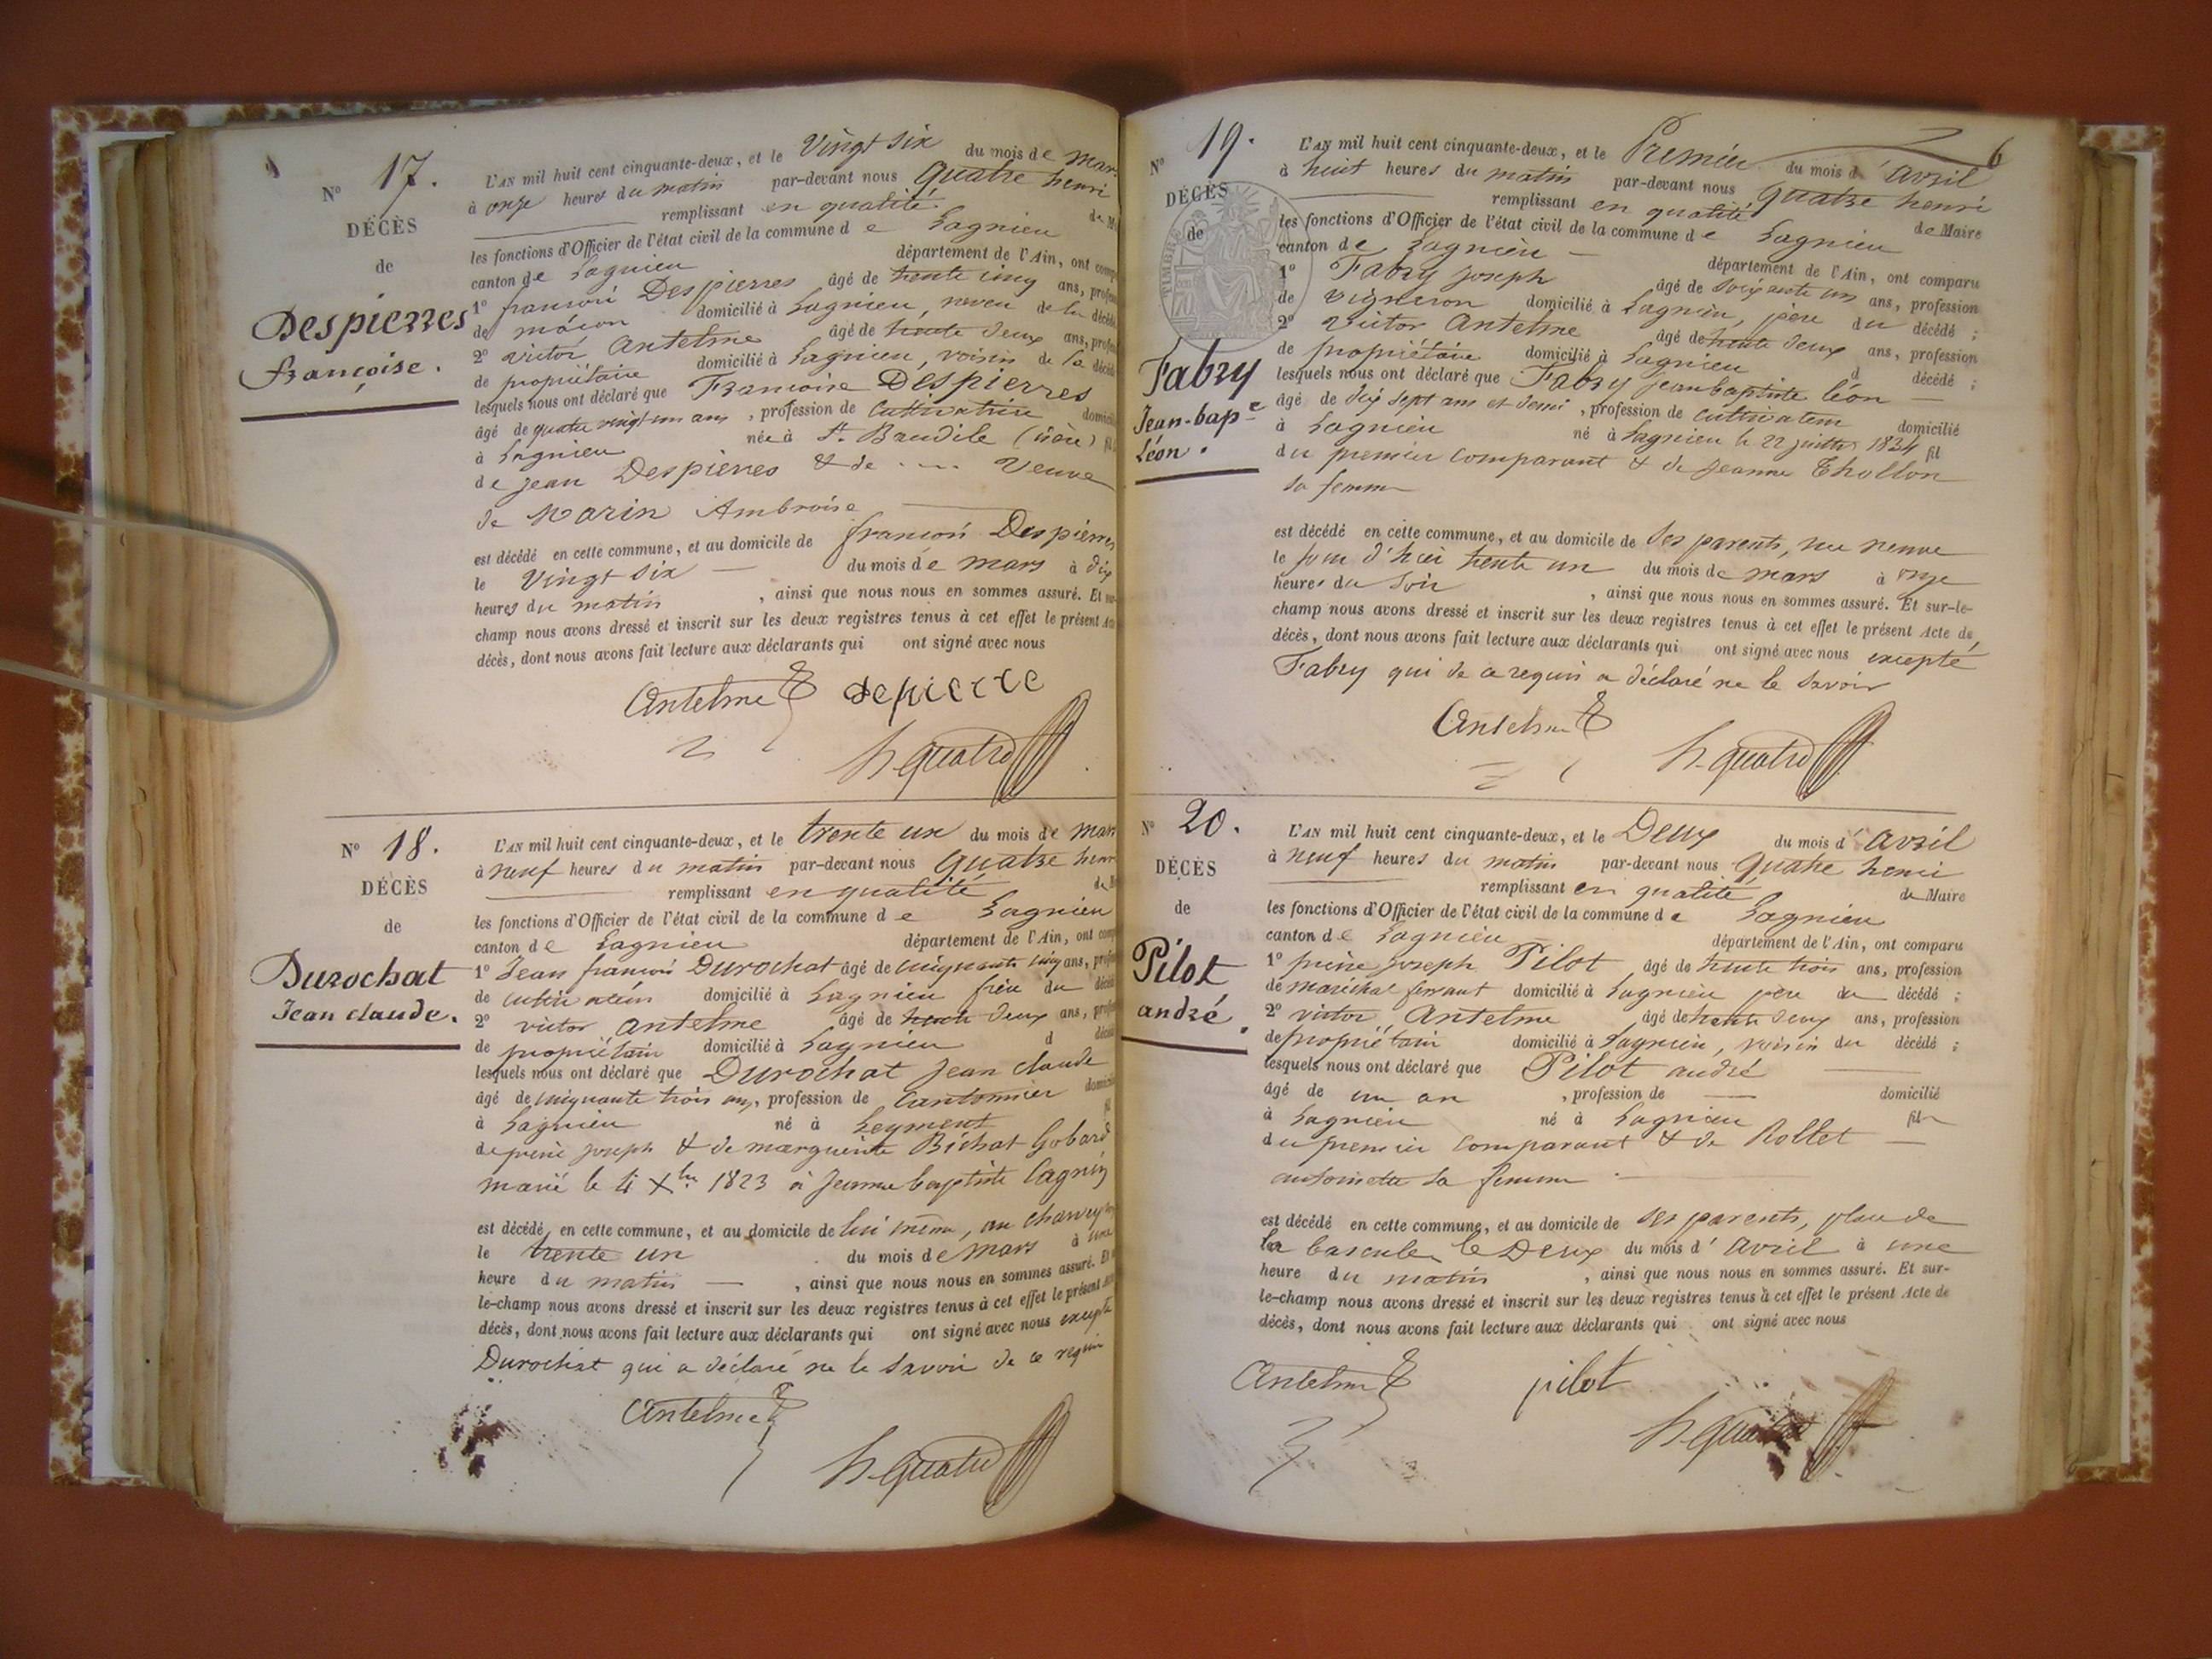 N° 17.
DÉCÈS
de
Despierres
françoise.
L'AN mil huit cent cinquante-deux, et le Vingt six du mois de mars
à onze heures du matin par-devant nous Quatre henri
remplissant en qualité de
les fonctions d'Officier de l'état civil de la commune de Lagnieu
canton de Lagnieu département de l'Ain, ont
1° françois Despierres âgé de trente cinq ans,
de mâcon domicilié à Lagnieu, neveu de la
2° victor Antelme âgé de trente deux ans,
de propriétaire domicilié à Lagnieu, voisin de la
lesquels nous ont déclaré que Françoise Despierres
âgé de quatre vingt un ans, profession de cultivatrice
à Lagnieu née à St. Baudile (isère)
de jean Despierres & de .... Veuve
de Marin Ambroise
est décédé en cette commune, et au domicile de françois Despierres
le Vingt six du mois de mars à dix
heures du matin, ainsi que nous nous en sommes assuré. Et
champ nous avons dressé et inscrit sur les deux registres tenus à cet effet le présent
décès, dont nous avons fait lecture aux déclarants qui ont signé avec nous
Antelme depierre
h. quatre
N° 18.
DÉCÈS
de
Durochat
Jean claude.
L'AN mil huit cent cinquante-deux, et le trente un du mois de mars
à neuf heures du matin par-devant nous Quatre henri
remplissant en qualité de
les fonctions d'Officier de l'état civil de la commune de Lagnieu
canton de Lagnieu département de l'Ain, ont
1° Jean françois Durochat âgé de cinquante cinq ans,
de cultivateur domicilié à Lagnieu frère du
2° victor antelme âgé de trente deux ans,
de propriétaire domicilié à Lagnieu d
lesquels nous ont déclaré que Durochat Jean claude
âgé de cinquante trois ans, profession de Cantonnier
à Lagnieu né à Leyment
de pierre joseph & de marguerite Bichat Gobard
marié le 4 Xbre 1823 à Jeanne baptiste Cagnin
est décédé, en cette commune, et au domicile de lui même, au
le trente un du mois de mars à une
heure du matin, ainsi que nous nous en sommes assuré. Et
le-champ nous avons dressé et inscrit sur les deux registres tenus à cet effet le présent
décès, dont nous avons fait lecture aux déclarants qui ont signé avec nous excepté
Durochat qui a déclaré ne le savoir de ce requis
Antelme
h. Quatre
6
N° 19.
DÉCÈS
de
Fabry
Jean-bape
Léon.
TIMBRE
L'AN mil huit cent cinquante-deux, et le Premier du mois d'avril
à huit heures du matin par-devant nous Quatre henri
remplissant en qualité de Maire
les fonctions d'Officier de l'état civil de la commune de Lagnieu
canton de Lagnieu département de l'Ain, ont comparu
1° Fabry joseph âgé de soixante un ans, profession
de vigneron domicilié à Lagnieu, père du décédé;
2° victor Antelme âgé de trente deux ans, profession
de propriétaire domicilié à Lagnieu d décédé;
lesquels nous ont déclaré que Fabry jean baptiste léon
âgé de dix sept ans et demi, profession de cultivateur domicilié
à Lagnieu né à Lagnieu le 22 juillet 1834 fil
du premier comparant & de Jeanne Thollon
sa femme
est décédé en cette commune, et au domicile de ses parents, rue neuve
le jour d'hier trente un du mois de mars à onze
heures du soir, ainsi que nous nous en sommes assuré. Et sur-le-
champ nous avons dressé et inscrit sur les deux registres tenus à cet effet le présent Acte de
décès, dont nous avons fait lecture aux déclarants qui ont signé avec nous excepté
Fabry qui de ce requis a déclaré ne le savoir
Antelme
h. quatre
N° 20.
DÉCÈS
de
Pilot
andré.
L'AN mil huit cent cinquante-deux, et le Deux du mois d'avril
à neuf heures du matin par-devant nous Quatre henri
remplissant en qualité de Maire
les fonctions d'Officier de l'état civil de la commune de Lagnieu
canton de Lagnieu département de l'Ain, ont comparu
1° pierre joseph Pilot âgé de trente trois ans, profession
de maréchal ferrant domicilié à Lagnieu père du décédé;
2° victor Antelme âgé de trente deux ans, profession
de propriétaire domicilié à Lagnieu, voisin du décédé;
lesquels nous ont déclaré que Pilot andré
âgé de un an, profession de domicilié
à Lagnieu né à Lagnieu fils
du premier comparant & de Rollet
antoinette sa femme
est décédé en cette commune, et au domicile de ses parents, place de
la bascule, le Deux du mois d'avril à une
heure du matin, ainsi que nous nous en sommes assuré. Et sur-
le-champ nous avons dressé et inscrit sur les deux registres tenus à cet effet le présent Acte de
décès, dont nous avons fait lecture aux déclarants qui ont signé avec nous
Antelme pilot
h. quatre